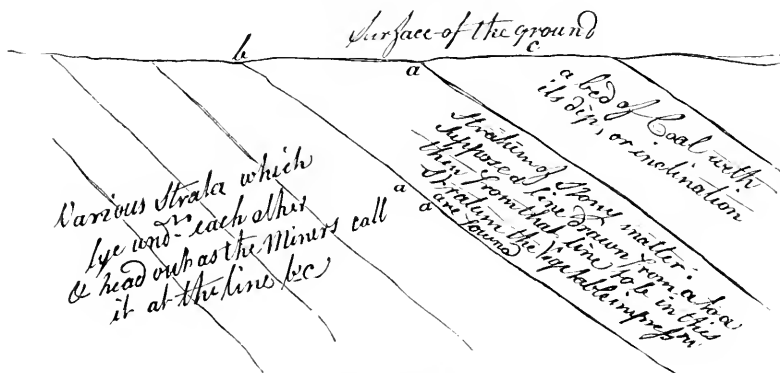 Surface of the ground
b
a
c
a bed of Coal with
its dip, or inclination
Stratum of Stony matter:
Supposed line drawn from a to a
then from that line to b in this
Stratum the vegetable impressn:
are found
a
a
Various Strata which
lye undr. each other
& head out as the Miners call
it at the line b c